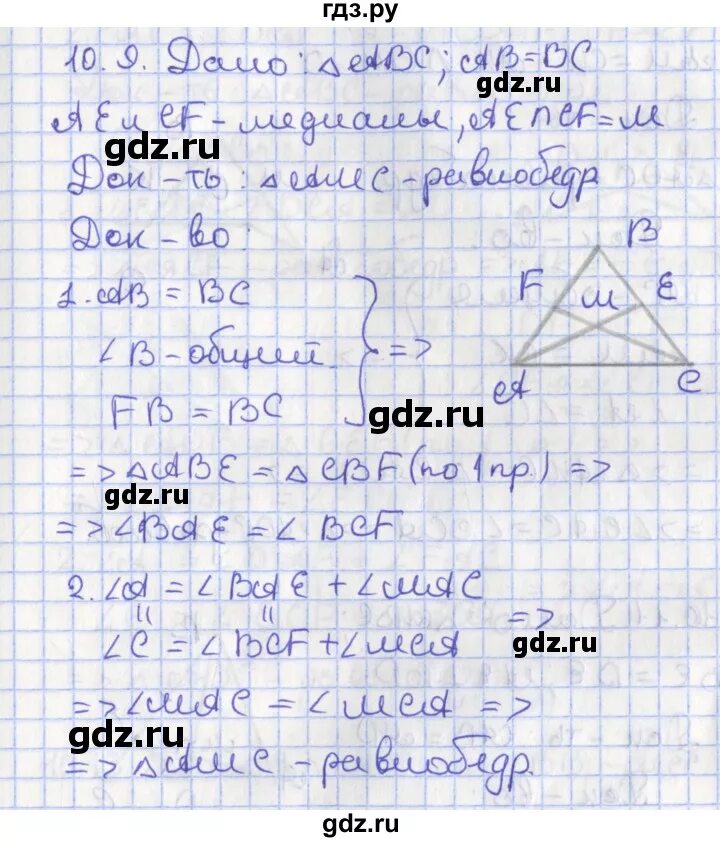 гдз.ру
10.9. Дано: △ABC; AB=BC
AE и CF - медианы, AE∩CF=M
gdz.ru
gdz.ru
Док-ть: △AMC - равнобедр
Док-во:
1. AB = BC
∠B - общий
FB = BC
} =>
B
F
M
E
A
C
gdz.ru
=> △ABE = △CBF (по 1 пр.) =>
gdz.ru
=> ∠BAE = ∠BCF
2. ∠A = ∠BAE + ∠MAC
" " =>
∠C = ∠BCF + ∠MCA
gdz.ru
=> ∠MAC = ∠MCA =>
gdz.ru
=> △AMC - равнобедр.
gdz.ru
gdz.ru